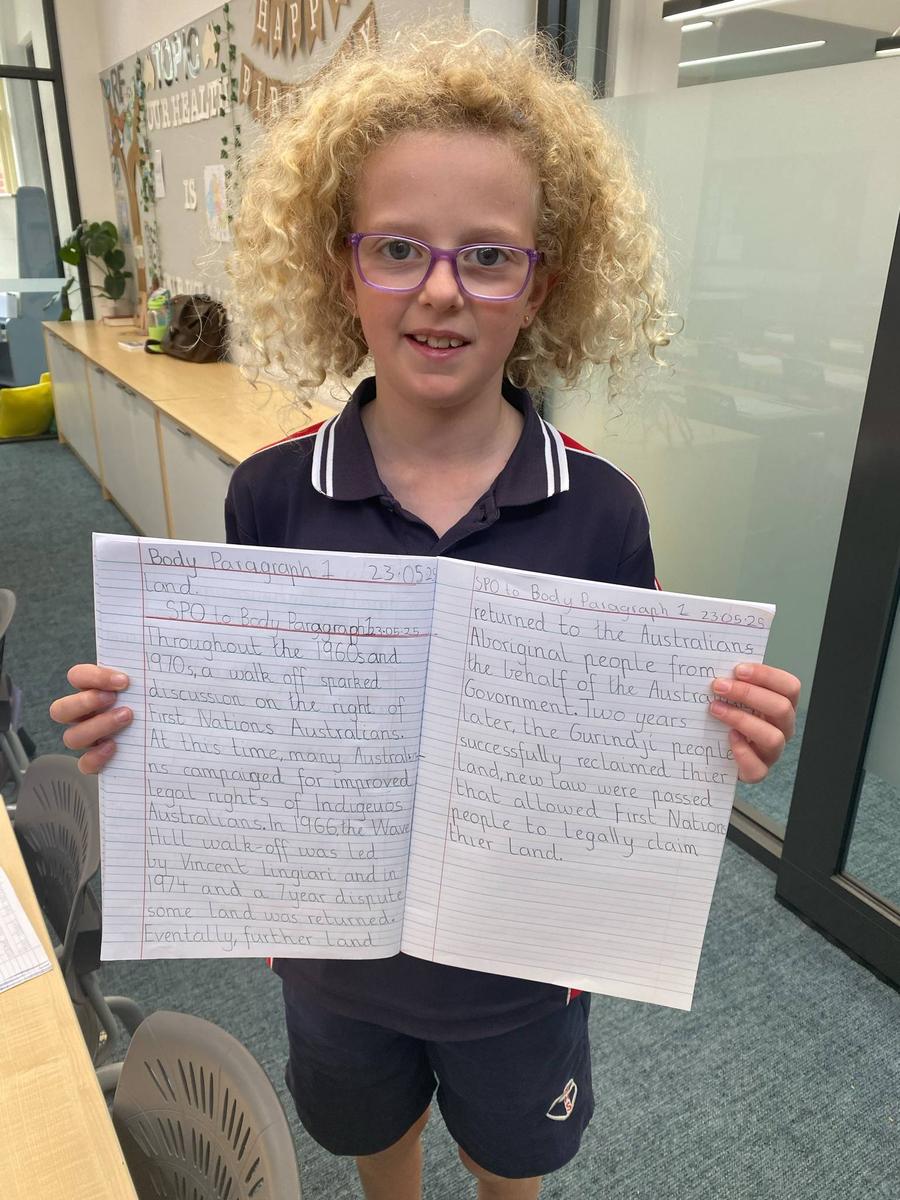 HAPPY
BIRT
RE
TOPIC
OUR HEALTH
IS
Body Paragraph 1 23:05:25
Land.
SPO to Body Paragraph1 23:05:25
Throughout the 1960s and
1970s, a walk off sparked
discussion on the right of
First Nations Australians.
At this time, many Australi-
ns campaiged for improved
legal rights of Indigeuos
Australians. In 1966, the Wave
Hill walk-off was led
by Vincent Lingiari and in
1974 and a 7year dispute
some land was returned.
Eventally, further land
SPO to Body Paragraph 1 23:05:25
returned to the Australians
Aboriginal people from
the behalf of the Austra
Govornment. Two years
later, the Gurindji people
successfully reclaimed thier
Land, new law were passed
that allowed First Nation
people to Legally claim
thier Land.